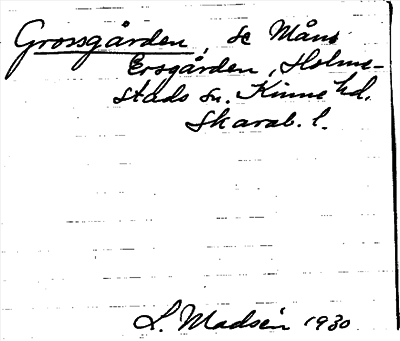 Grossgården, se Måns
Ersgården, Holme-
stads sn. Kinne hd.
Skarab. l.
L. Madsén 1930